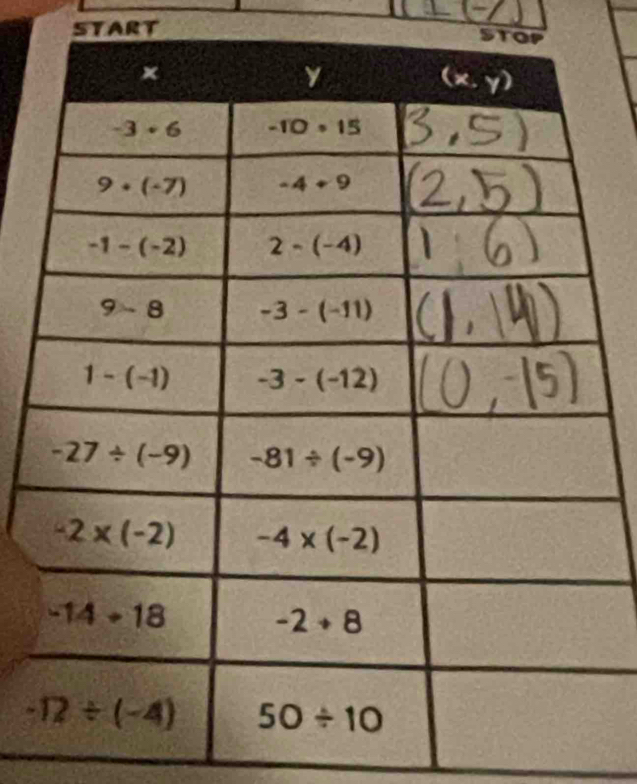 START STOP
x y (x, y)
-3 + 6 -10 + 15 (3, 5)
9 + (-7) -4 + 9 (2, 5)
-1 - (-2) 2 - (-4) 1, 6)
9 - 8 -3 - (-11) (1, 14)
1 - (-1) -3 - (-12) (0, -15)
-27 ÷ (-9) -81 ÷ (-9)
-2 × (-2) -4 × (-2)
-14 + 18 -2 + 8
-12 ÷ (-4) 50 ÷ 10